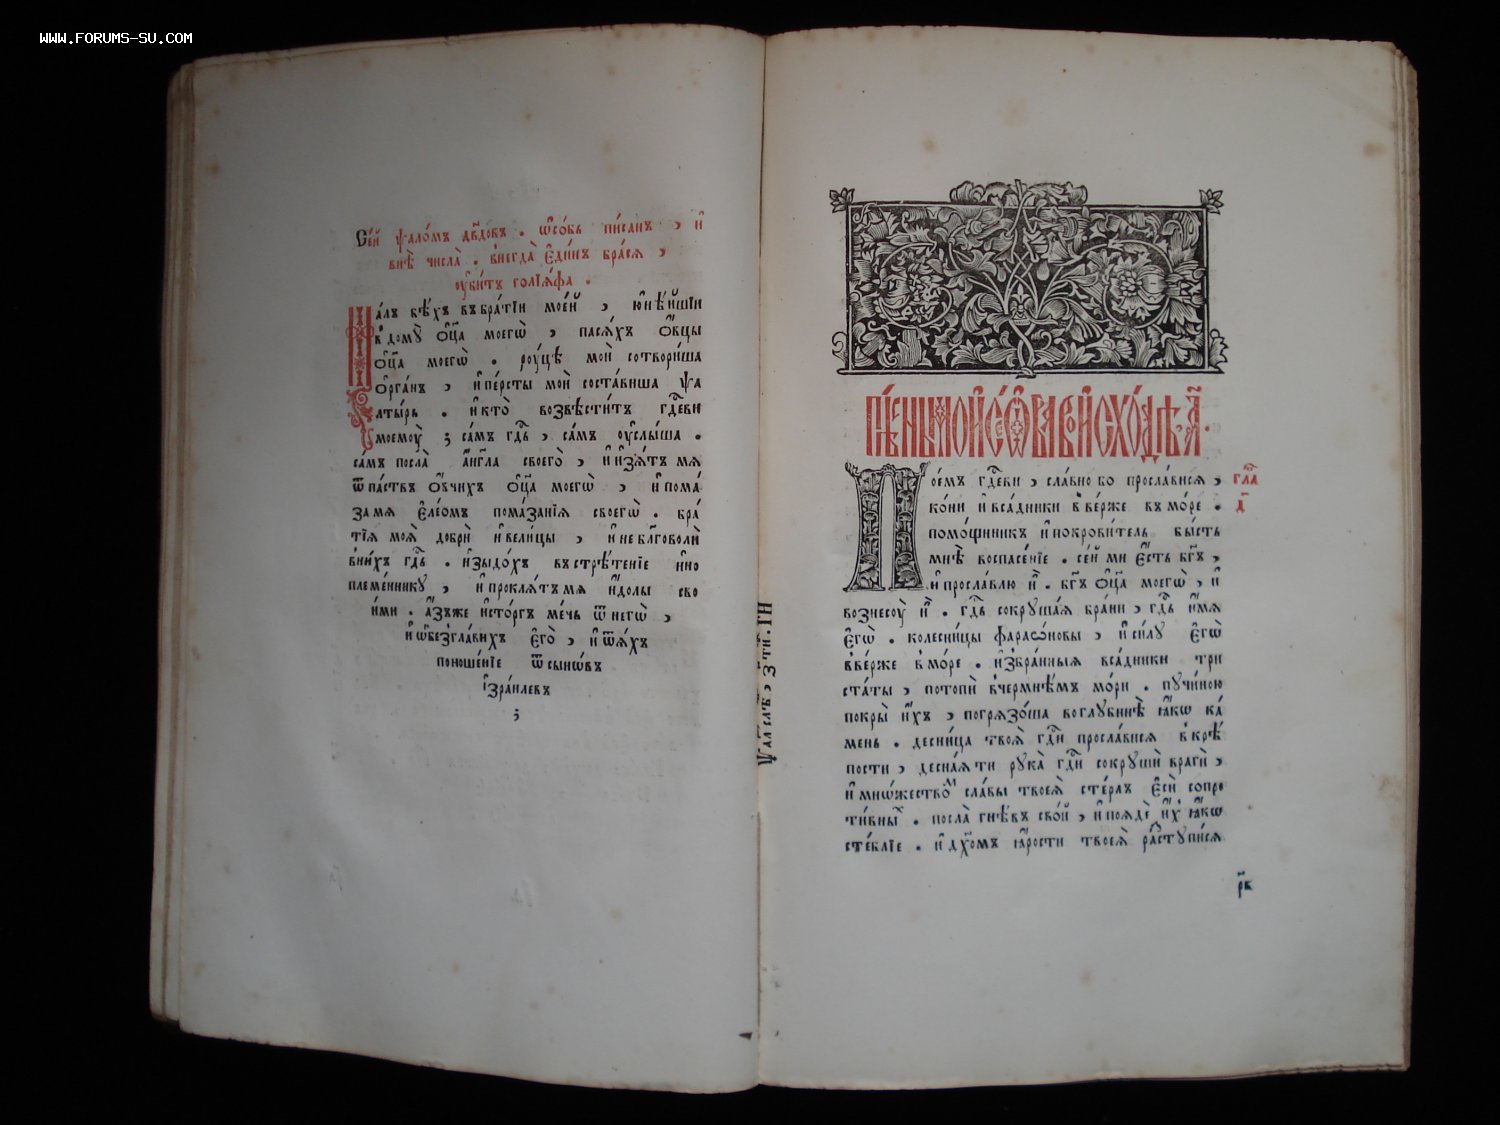 WWW.FORUMS-SU.COM
Се́й ѱало́мъ дв҃довъ . ѡ҆со́бь пи́санъ , и҆
внѣ̀ числа̀ . внегда̀ є҆ди́нъ бра́сѧ ,
оу҆би́тъ голїѧ́ѳа .
Ма́лъ бѣ́хъ въ бра́тїи мое́й , ю҆нѣ́йшїи
в дому̀ ѻ҆ц҃а̀ моегѡ̀ , пасѧ́хъ ѻ҆́вцы
ѻ҆ц҃а̀ моегѡ̀ . ро́уцѣ мои̑ сотвори́ша
ѻ҆рга́нъ , и҆ пе́рсты мои̑ соста́виша ѱа
лты́рь . и҆ кто̀ возвѣсти́тъ гд҇еви
моемо́у ; са́мъ гд҇ь , са́мъ оу҆слы́ша .
са́мъ посла̀ а҆́нг҃ла своего̀ , и҆ и҆зѧ́тъ мѧ
ѿ па́ствъ ѻ҆́вчихъ ѻ҆ц҃а̀ моегѡ̀ , и҆ пома́
за мѧ є҆ле́омъ пома́занїѧ своегѡ̀ . бра́
тїѧ моѧ̑ добрѝ и҆ вели́цы , и҆ не бл҃говолѝ
в ни́хъ гд҇ь . и҆зыдо́хъ в стрѣ́тенїе и҆но
племе́ннику , и҆ проклѧ́тъ мѧ и҆́долы сво
и́ми . а҆́зъ же и҆сто́ргъ ме́чь ѿ негѡ̀ ,
и҆ ѡ҆безгла́вихъ є҆го̀ , и҆ ѿѧ́хъ
поноше́нїе ѿ сыно́въ
і҆зра́илевъ
;
Пѣ́снь мѡѷсе́ѡва во и҆схо́дѣ . а҃ .
Пое́мъ гд҇еви , сла́вно бо просла́висѧ , гла
ко́ни и҆ вса́дники вве́рже в мо́ре . 
помо́щникъ и҆ покрови́тель бы́сть
мнѣ̀ во спасе́нїе . се́й ми є҆́сть бг҃ъ ,
и҆ просла́влю и҆̀ . бг҃ъ ѻ҆ц҃а̀ моегѡ̀ , и҆
вознесо́у и҆̀ . гд҇ь сокруша́ѧ бра́ни , гд҇ь и҆́мѧ
є҆гѡ̀ . колесни́цы фараѡ́новы , и҆ си́лу є҆гѡ̀
вве́рже в мо́ре . и҆збра́нныѧ вса́дники три
ста́ты , потопѝ в чермнѣ́мъ мо́ри . пучи́ною
покры̀ и҆́хъ , погрѧзо́ша во глубинѣ̀ ꙗ҆́кѡ ка́
мень . десни́ца твоѧ̀ гд҇и просла́висѧ в крѣ́
пости , десна́ѧ ти рука̀ гд҇и сокрушѝ врагѝ ,
и҆ мно́жествомъ сла́вы твоеѧ̀ сте́рлъ є҆сѝ сопро
ти́вныѧ . посла̀ гнѣ́въ сво́й , и҆ поѧдѐ и҆́хъ ꙗ҆́кѡ
сте́блїе . и҆ дх҃омъ ꙗ҆́рости твоеѧ̀ расступи́сѧ
рк҃